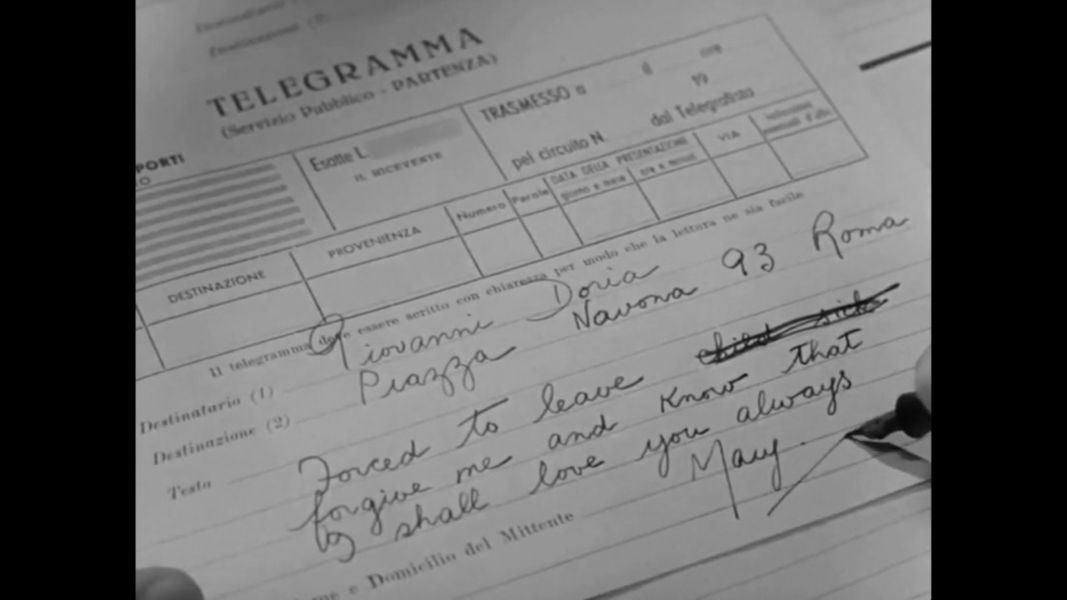 TELEGRAMMA
(Servizio Pubblico - PARTENZA)
PORTI
Esotte L.
IL RICEVENTE
TRASMESSO a il ore
19
pel circuito N. dal Telegrafista
DESTINAZIONE
PROVENIENZA
Numero
Parole
DATA DELLA PRESENTAZIONE
giorno e mese
ore e minuti
VIA
Il telegramma deve essere scritto con chiarezza per modo che la lettura ne sia facile
Destinatario (1) Giovanni Doria 93 Roma
Destinazione (2) Piazza Navona
Testo Forced to leave child sick
forgive me and know that
I shall love you always
Mary.
e Domicilio del Mittente